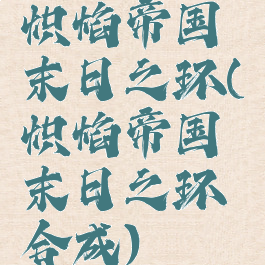 炽焰帝国
末日之环(
炽焰帝国
末日之环
合成)